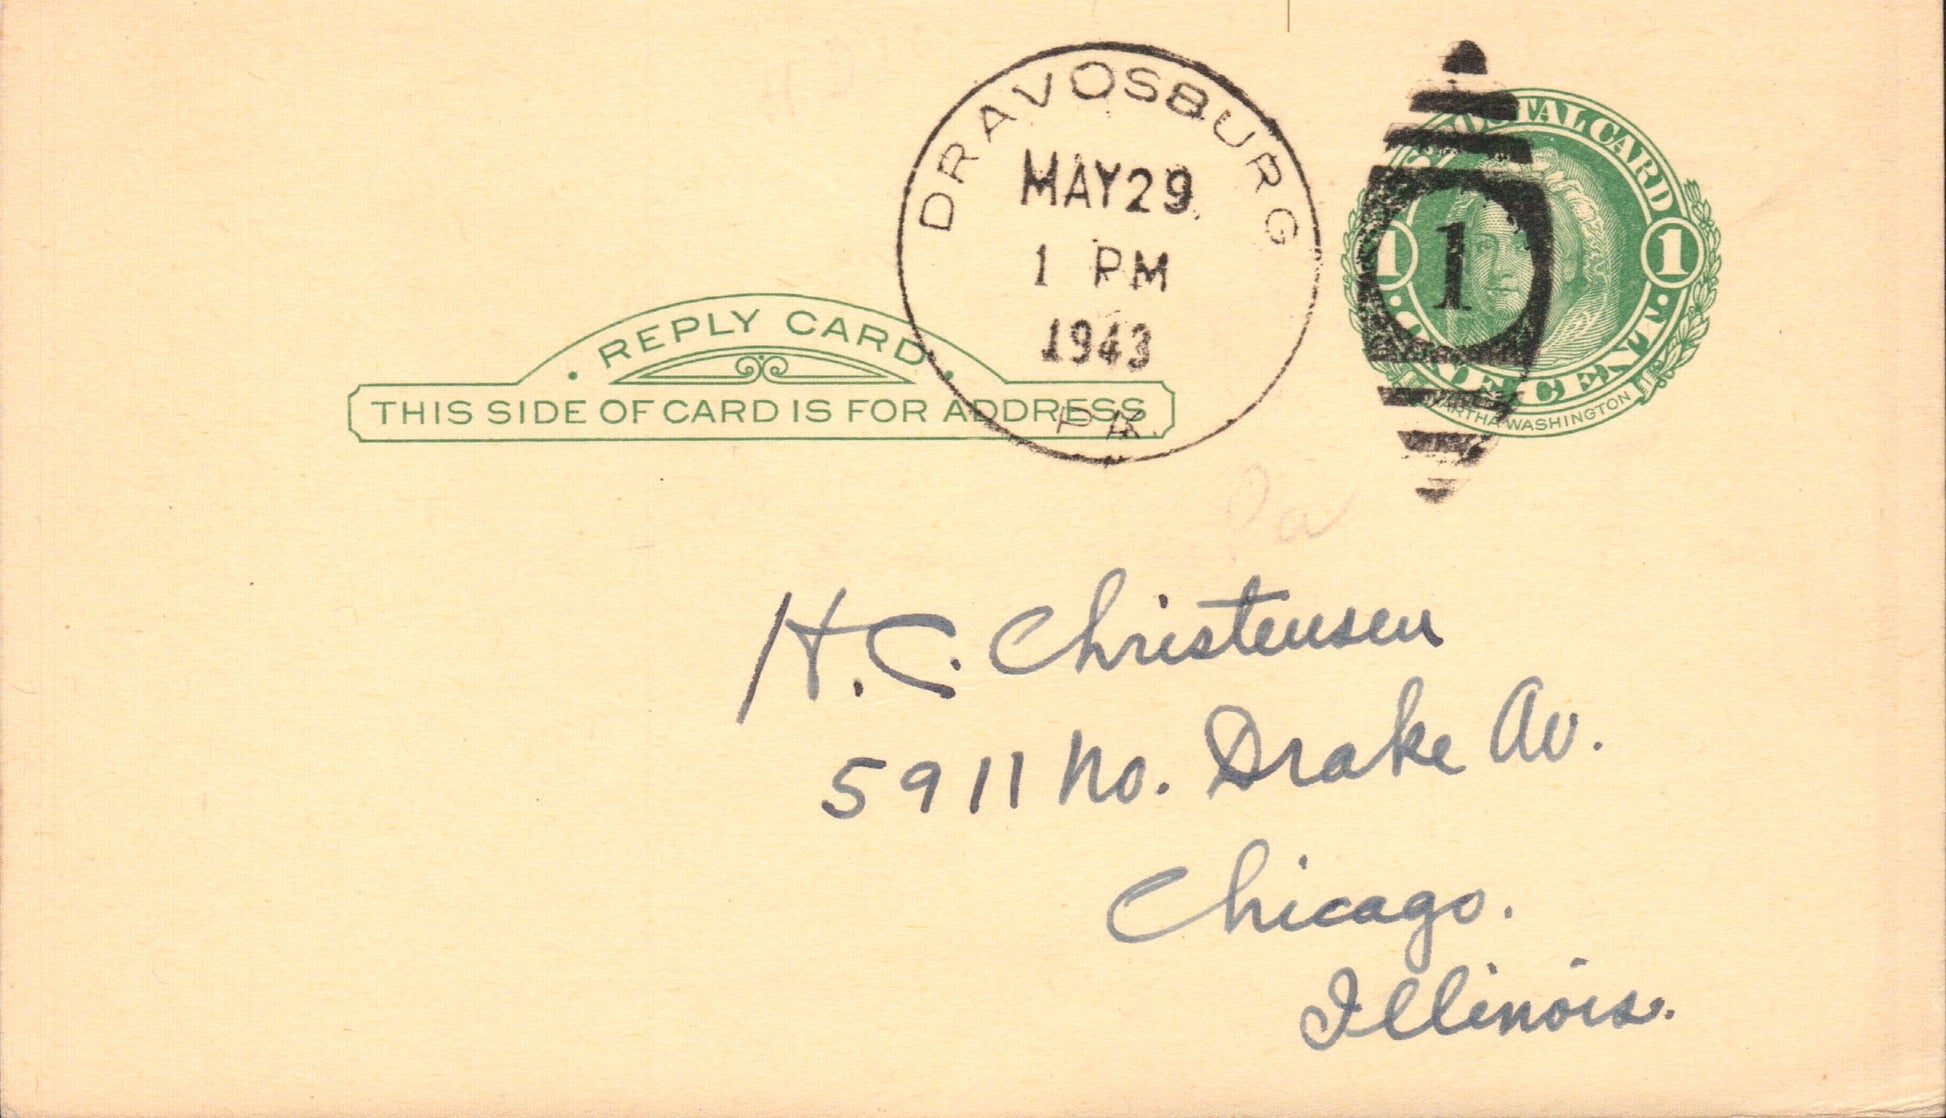 DRAVOSBURG
MAY 29
1 PM
1943
PA.
POSTAL CARD
1 1 1
ONE CENT
MARTHA WASHINGTON
REPLY CARD
THIS SIDE OF CARD IS FOR ADDRESS
Pa
H. C. Christensen
5911 No. Drake Av.
Chicago.
Illinois.